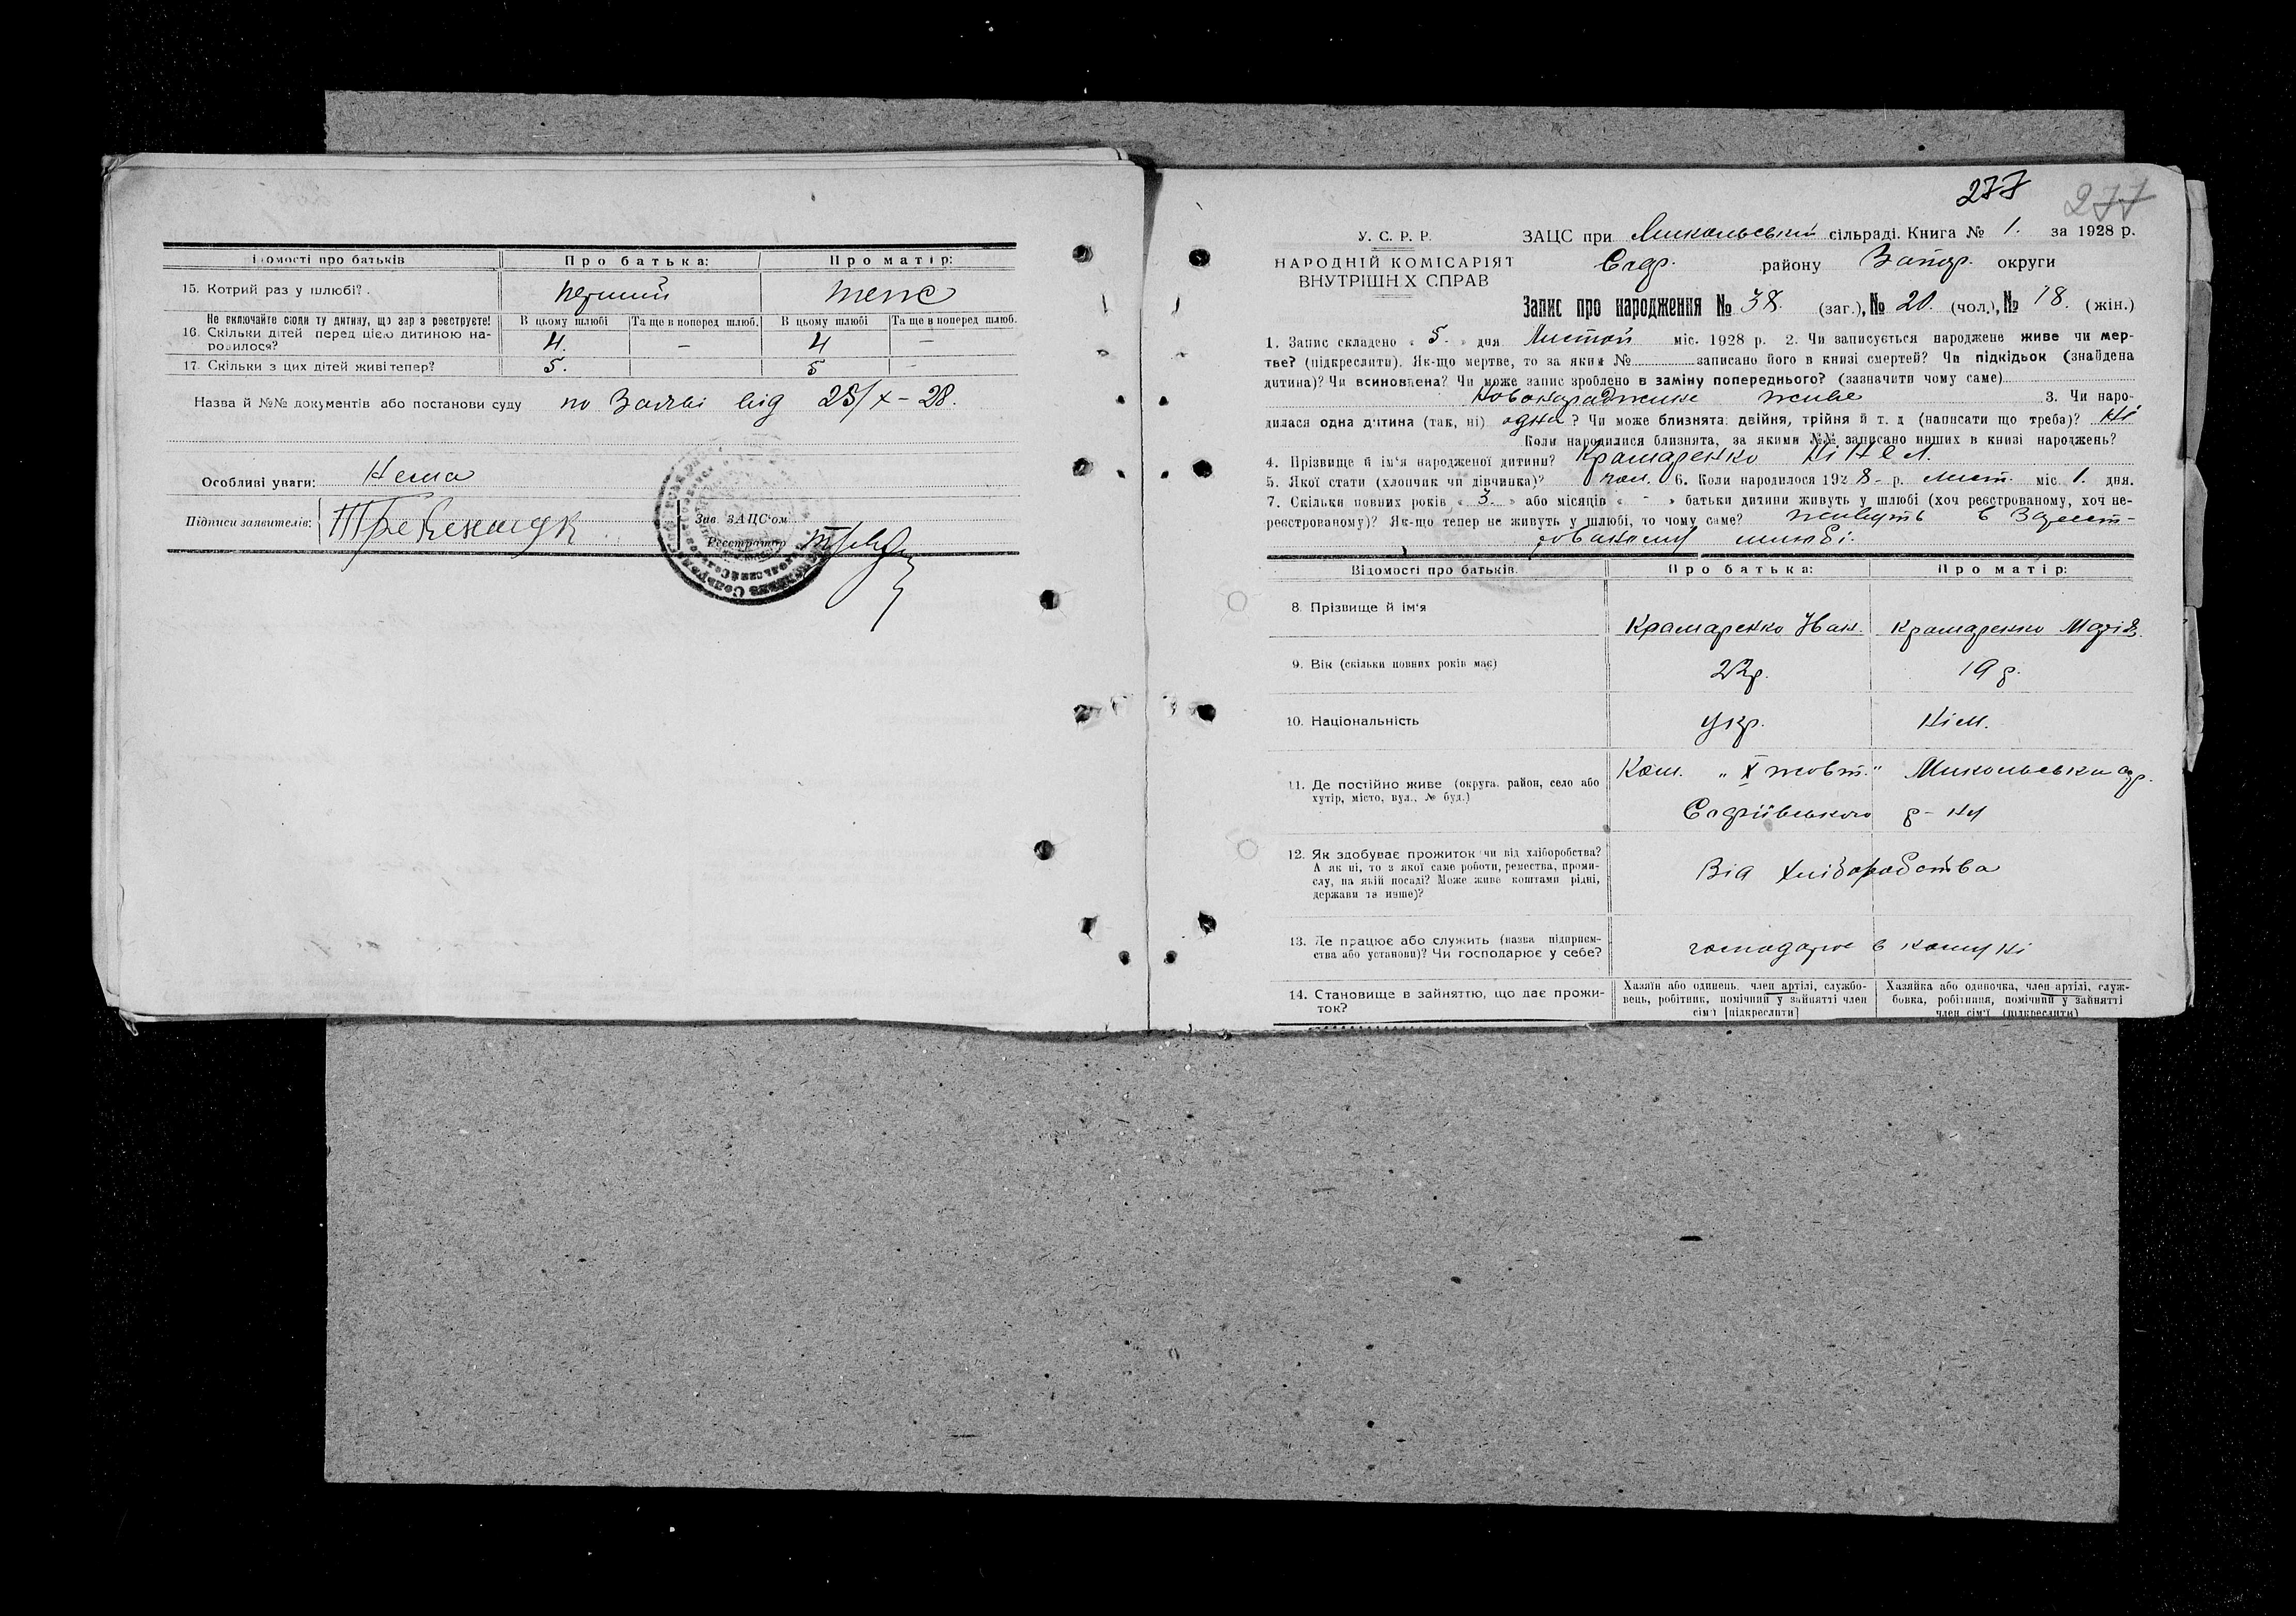 ідомості про батьків
Про батька:
Про матір:
15. Котрий раз у шлюбі?.
перший
теж
Не включайте сюди ту дитину, що зар з реєструєте!
16. Скільки дітей перед цією дитиною народилося?
В цьому шлюбі
Та ще в поперед шлюб.
В цьому шлюбі
Та ще в поперед шлюб.
4.
–
4
–
17. Скільки з цих дітей живі тепер?
5.
5
–
Назва й №№ документів або постанови суду по Заяві від 25/X – 28.
Особливі уваги: Нема
Підписи заявителів:
Зав. ЗАЦС'ом
Реєстратор
277
277
У. С. Р. Р.
НАРОДНІЙ КОМІСАРІЯТ
ВНУТРІШН.Х СПРАВ
ЗАЦС при Микольський сільраді. Книга № 1. за 1928 р.
Єлдр. району Запор. округи
Запис про народження № 38. (заг.), № 20. (чол.), № 18. (жін.)
1. Запис складено „ 5. „ дня Листоп міс. 1928 р. 2. Чи записується народжене живе чи мер-
тве? (підкреслити). Як-що мертве, то за яким № записано його в книзі смертей? Чи підкідьок (знайдена
дитина)? Чи всиновлена? Чи може запис зроблено в заміну попереднього? (зазначити чому саме)
Новонароджене живе 3. Чи наро-
дилася одна дитина (так, ні) одна? Чи може близнята: двійня, трійня й т. д (написати що треба)? Ні
Коли народилися близнята, за якими №№ записано инших в книзі народжень?
4. Прізвище й ім'я народженої дитини? Крамаренко Нінел.
5. Якої стати (хлопчик чи дівчинка)? чол. 6. Коли народилося 1928 - р. лист. міс 1. дня.
7. Скільки повних років « 3. » або місяців « - » батьки дитини живуть у шлюбі (хоч реєстрованому, хоч не-
реєстрованому)? Як-що тепер не живуть у шлюбі, то чому саме? живуть в Зареєст-
рованому шлюбі.
Відомості про батьків.
Про батька:
Про матір:
8. Прізвище й ім'я
Крамаренко Іван.
Крамаренко Марія.
9. Вік (скільки повних років має)
22р.
19 р.
10. Національність
Укр.
Нім.
11. Де постійно живе (округа, район, село або
хутір, місто, вул., № буд.)
Ком. „X жовт." Микольська ср.
р-ну
12. Як здобуває прожиток чи від хліборобства?
А як ні, то з якої саме роботи, ремества, проми-
слу, на якій посаді? Може живе коштами рідні,
держави та инше)?
Від хліборобства
13. Де працює або служить (назва підприєм-
ства або установи)? Чи господарює у себе?
господарює в комуні
14. Становище в зайняттю, що дає прожи-
ток?
Хазяїн або одинець, член артілі, службо-
вець, робітник, помічний у зайнятті член
сім'ї [підкреслити]
Хазяйка або одиночка, член артілі, служ-
бовка, робітниця, помічний у зайнятті
член сім'ї (підкреслити)